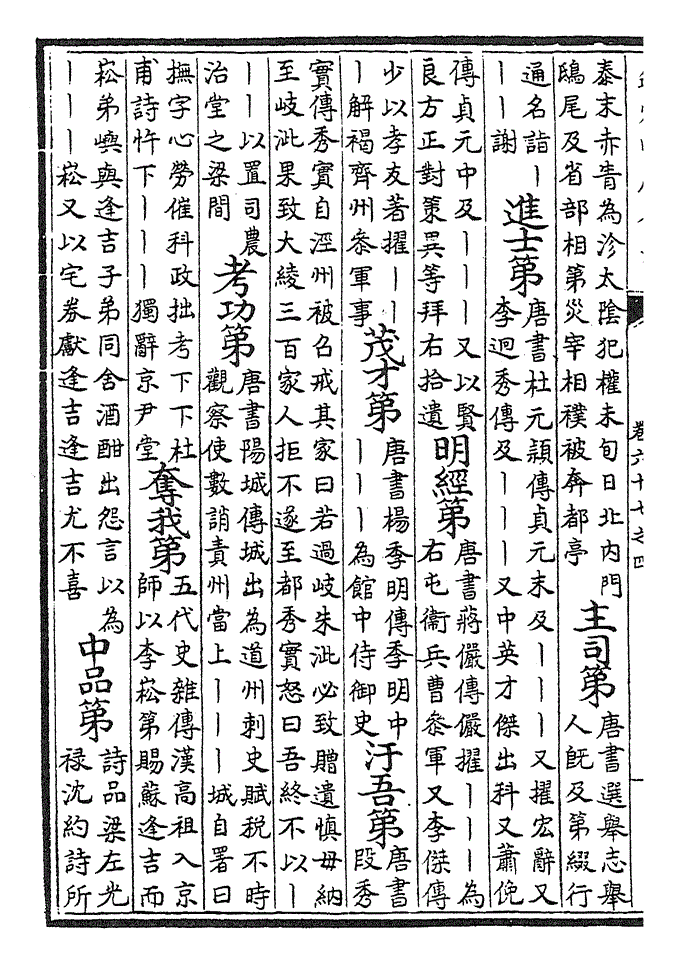 卷六十七之四
泰末赤青為沴太陰犯權未旬日北内門
鴟尾及省部相第災宰相襆被奔都亭
主司第
唐書選舉志舉
人既及第綴行
通名詣丨
丨丨謝
進士第
唐書杜元穎傳貞元末及丨丨丨又擢宏辭又
李迥秀傳及丨丨丨又中英才傑出科又蕭俛
傳貞元中及丨丨丨又以賢
良方正對策異等拜右拾遺
明經第
唐書蔣儼傳儼擢丨丨丨為
右屯衞兵曹參軍又李傑傳
少以孝友著擢丨丨
丨解褐齊州參軍事
茂才第
唐書楊季明傳季明中
丨丨丨為館中侍御史
汙吾第
唐書
段秀
實傳秀實自涇州被召戒其家曰若過岐朱泚必致贈遺慎毋納
至岐泚果致大綾三百家人拒不遂至都秀實怒曰吾終不以丨
丨丨以置司農
治堂之梁間
考功第
唐書陽城傳城出為道州刺史賦税不時
觀察使數誚責州當上丨丨丨城自署曰
撫字心勞催科政拙考下下杜
甫詩忤下丨丨丨獨辭京尹堂
奪我第
五代史雜傳漢高祖入京
師以李崧第賜蘇逢吉而
崧弟嶼與逢吉子弟同舍酒酣出怨言以為
丨丨丨崧又以宅券獻逢吉逢吉尤不喜
中品第
詩品梁左光
禄沈約詩所